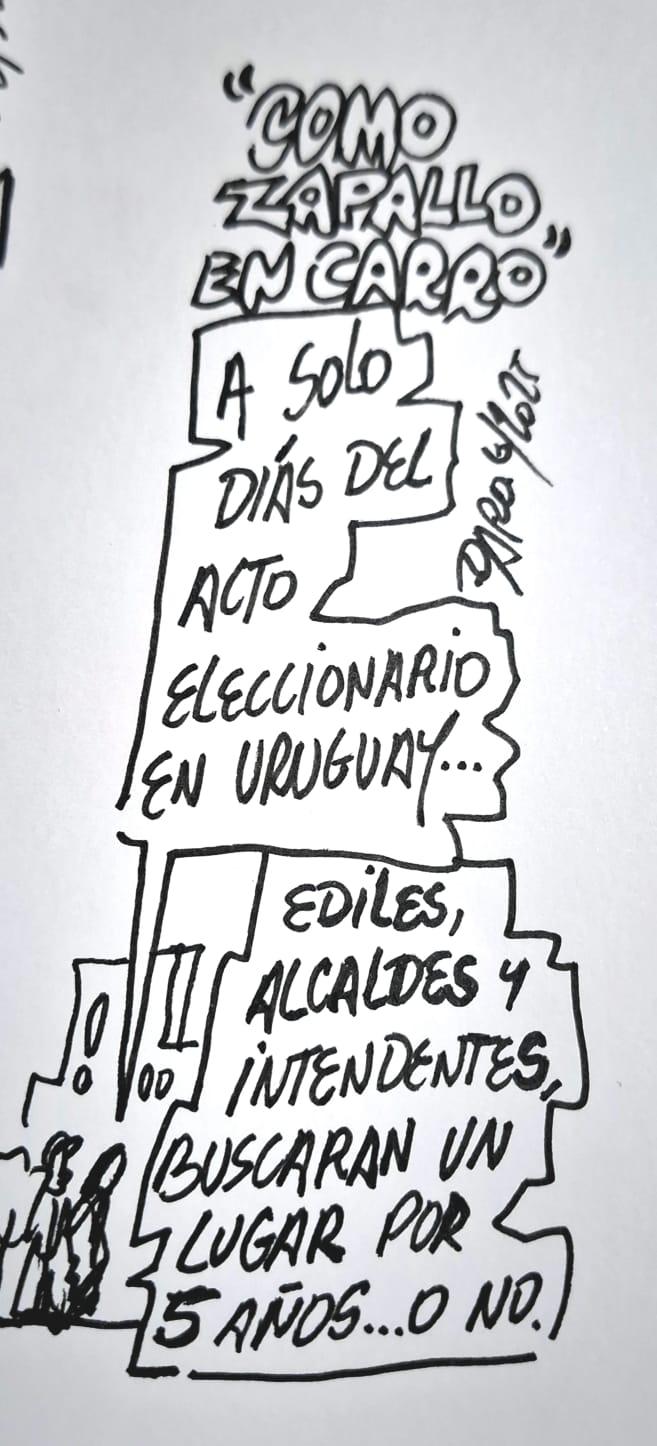 "COMO
ZAPALLO
EN CARRO"
A SOLO
DÍAS DEL
ACTO
ELECCIONARIO
EN URUGUAY...
EDILES,
ALCALDES Y
INTENDENTES,
BUSCARAN UN
LUGAR POR
5 AÑOS...O NO.